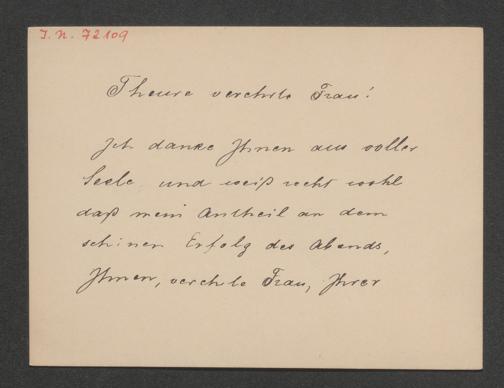 I. N. 72109
Theure verehrte Frau!
Ich danke Ihnen aus voller
Seele und weiß recht wohl
daß mein Antheil an dem
schönen Erfolg des Abends,
Ihnen, verehrte Frau, Ihrer